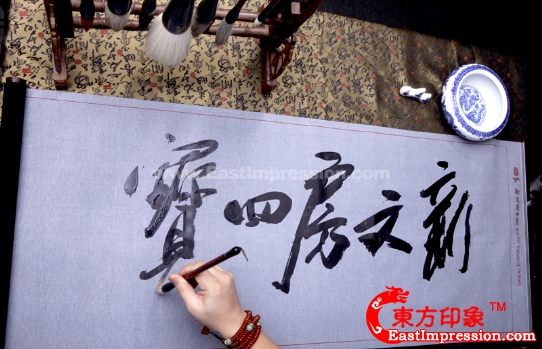 新文房四寶
www.EastImpression.com
東方印象™
EastImpression.com